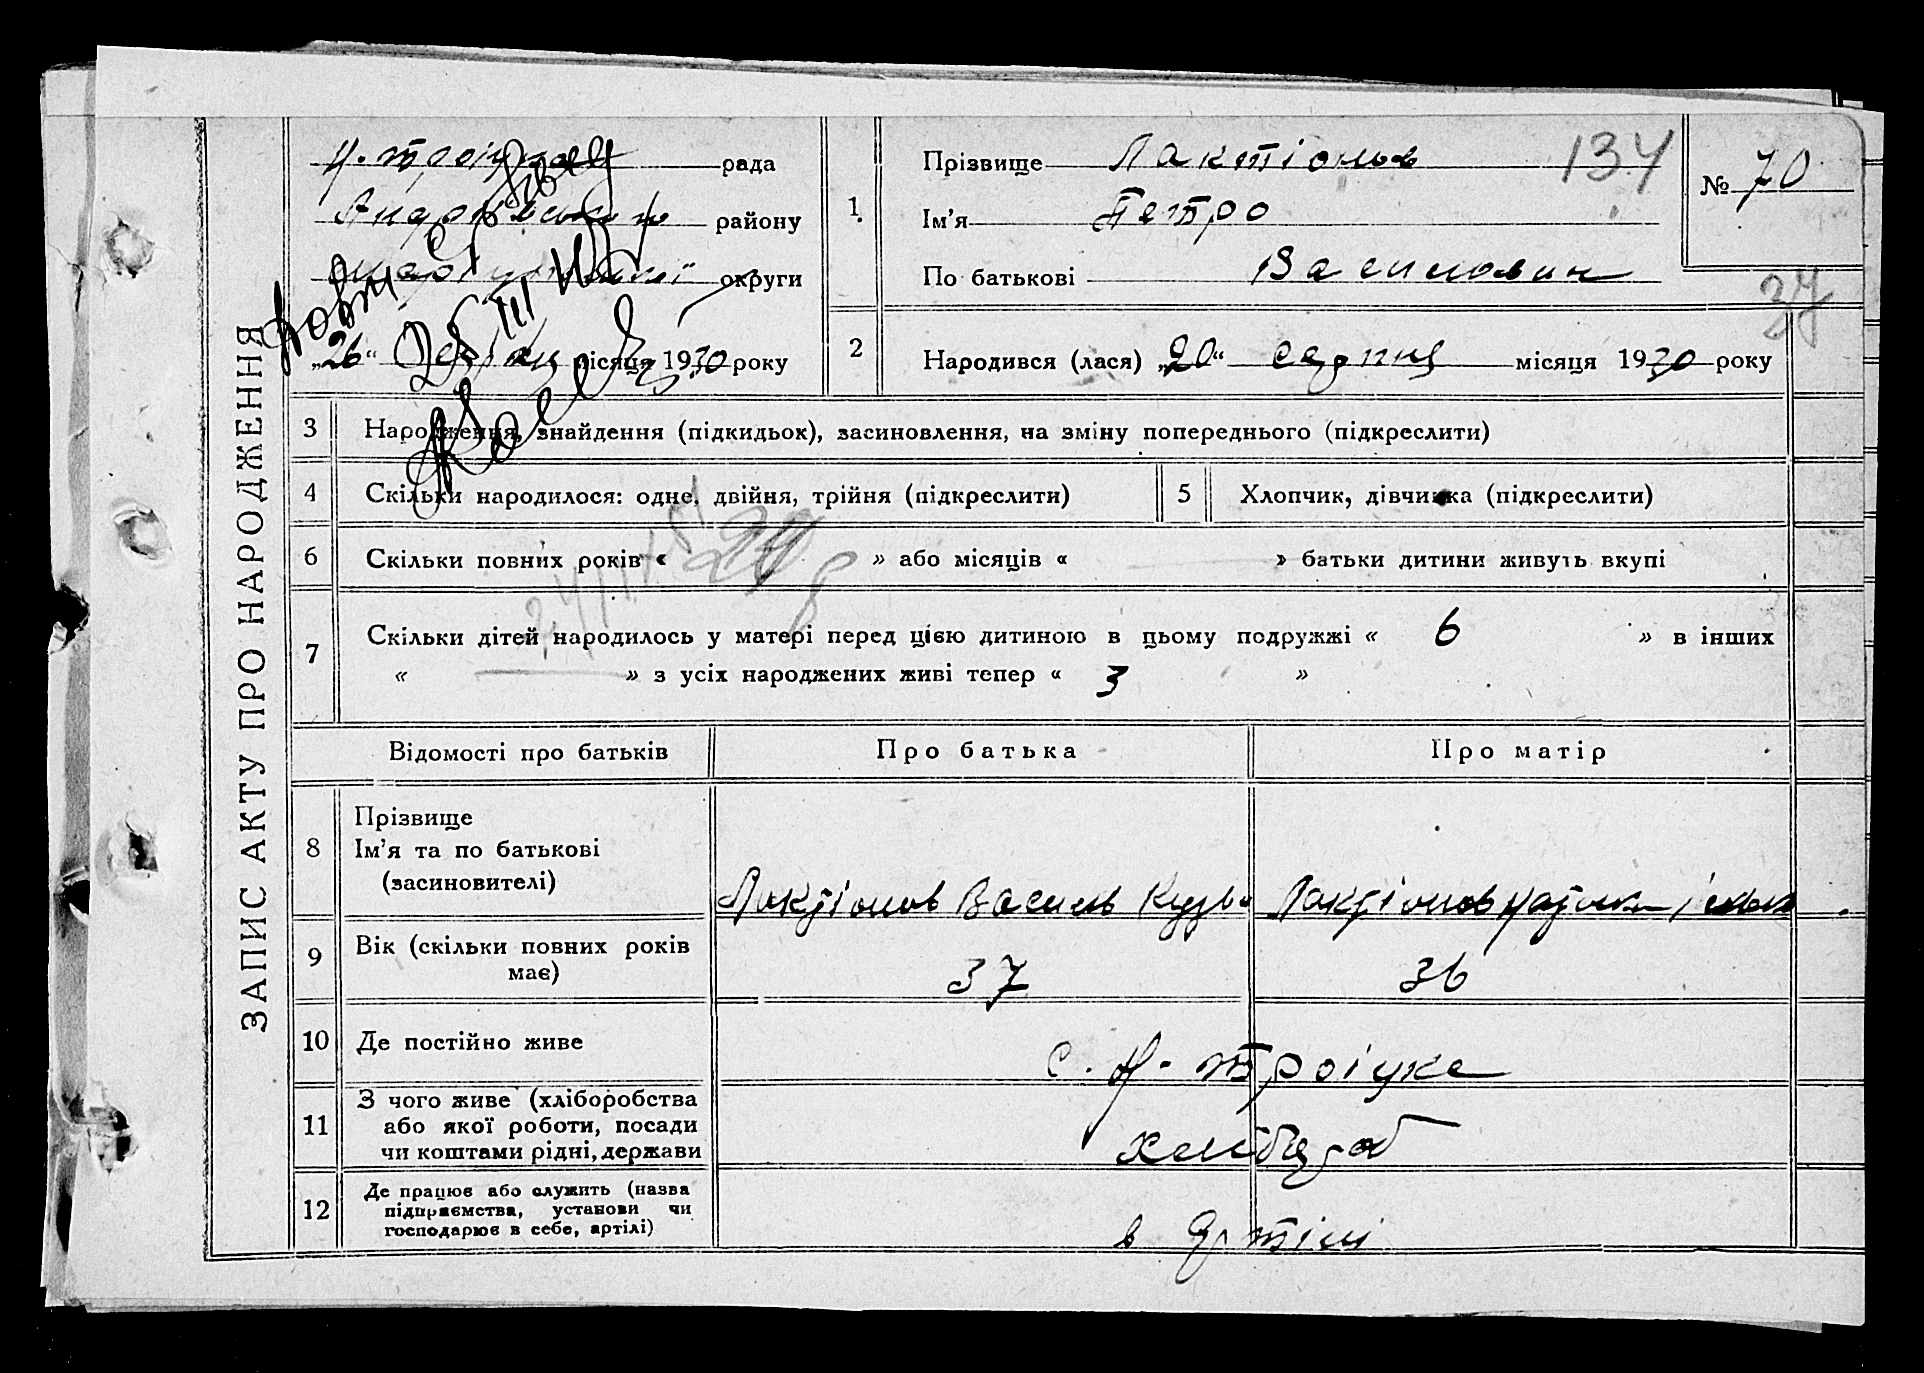 ЗАПИС АКТУ ПРО НАРОДЖЕННЯ
рада
району
округи
„26“ місяця 1930 року
1.
Прізвище Лактіонов
134
Ім'я Петро
По батькові Василович
№ 70
37
2
Народився (лася) „20“ серпня місяця 1930 року
3 Народження, знайдення (підкидьок), засиновлення, на зміну попереднього (підкреслити)
4 Скільки народилося: одне, двійня, трійня (підкреслити)
5 Хлопчик, дівчинка (підкреслити)
6 Скільки повних років « » або місяців « » батьки дитини живуть вкупі
7 Скільки дітей народилось у матері перед цією дитиною в цьому подружжі « 6 » в інших
« » з усіх народжених живі тепер « 3 »
Відомості про батьків Про батька Про матір
8 Прізвище
Ім'я та по батькові
(засиновителі)
Лактіонов Василь Кузь Лактіонов
9 Вік (скільки повних років
має)
37 36
10 Де постійно живе
с. Н-Троіцке
11 З чого живе (хліборобства
або якої роботи, посади
чи коштами рідні, держави
хлібороб
12 Де працює або служить (назва
підприємства, установи чи
господарює в себе, артілі)
в Артілі